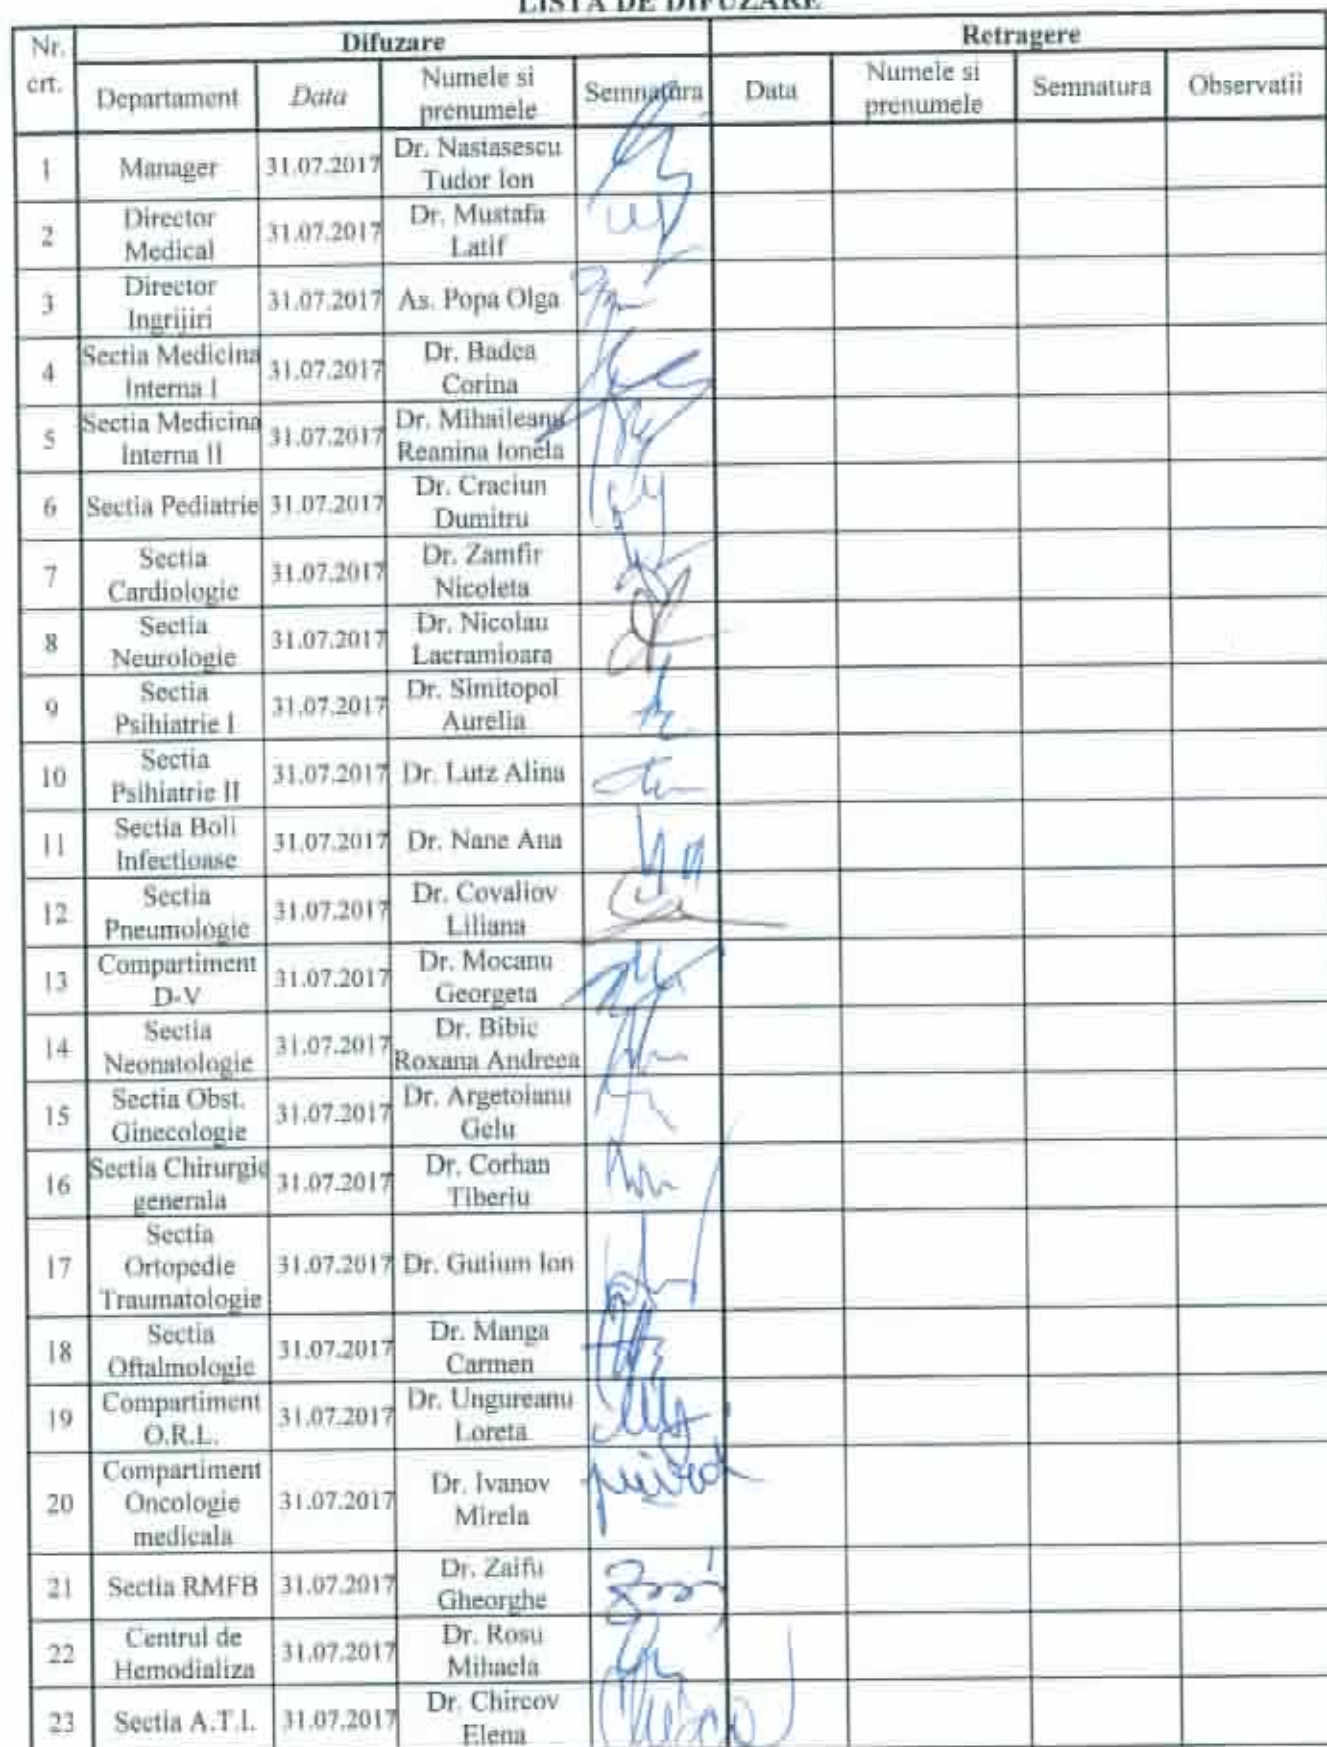 LISTA DE DIFUZARE
Nr. crt. Difuzare Retragere
Departament Data Numele si prenumele Semnatura Data Numele si prenumele Semnatura Observatii
1 Manager 31.07.2017 Dr. Nastasescu Tudor Ion
2 Director Medical 31.07.2017 Dr. Mustafa Latif
3 Director Ingrijiri 31.07.2017 As. Popa Olga
4 Sectia Medicina Interna I 31.07.2017 Dr. Badea Corina
5 Sectia Medicina Interna II 31.07.2017 Dr. Mihaileanu Reanina Ionela
6 Sectia Pediatrie 31.07.2017 Dr. Craciun Dumitru
7 Sectia Cardiologie 31.07.2017 Dr. Zamfir Nicoleta
8 Sectia Neurologie 31.07.2017 Dr. Nicolau Lacramioara
9 Sectia Psihiatrie I 31.07.2017 Dr. Simitopol Aurelia
10 Sectia Psihiatrie II 31.07.2017 Dr. Lutz Alina
11 Sectia Boli Infectioase 31.07.2017 Dr. Nane Ana
12 Sectia Pneumologie 31.07.2017 Dr. Covaliov Liliana
13 Compartiment D-V 31.07.2017 Dr. Mocanu Georgeta
14 Sectia Neonatologie 31.07.2017 Dr. Bibic Roxana Andreea
15 Sectia Obst. Ginecologie 31.07.2017 Dr. Argetoianu Gelu
16 Sectia Chirurgie generala 31.07.2017 Dr. Corhan Tiberiu
17 Sectia Ortopedie Traumatologie 31.07.2017 Dr. Gutium Ion
18 Sectia Oftalmologie 31.07.2017 Dr. Manga Carmen
19 Compartiment O.R.L. 31.07.2017 Dr. Ungureanu Loreta
20 Compartiment Oncologie medicala 31.07.2017 Dr. Ivanov Mirela
21 Sectia RMFB 31.07.2017 Dr. Zaifu Gheorghe
22 Centrul de Hemodializa 31.07.2017 Dr. Rosu Mihaela
23 Sectia A.T.I. 31.07.2017 Dr. Chircov Elena